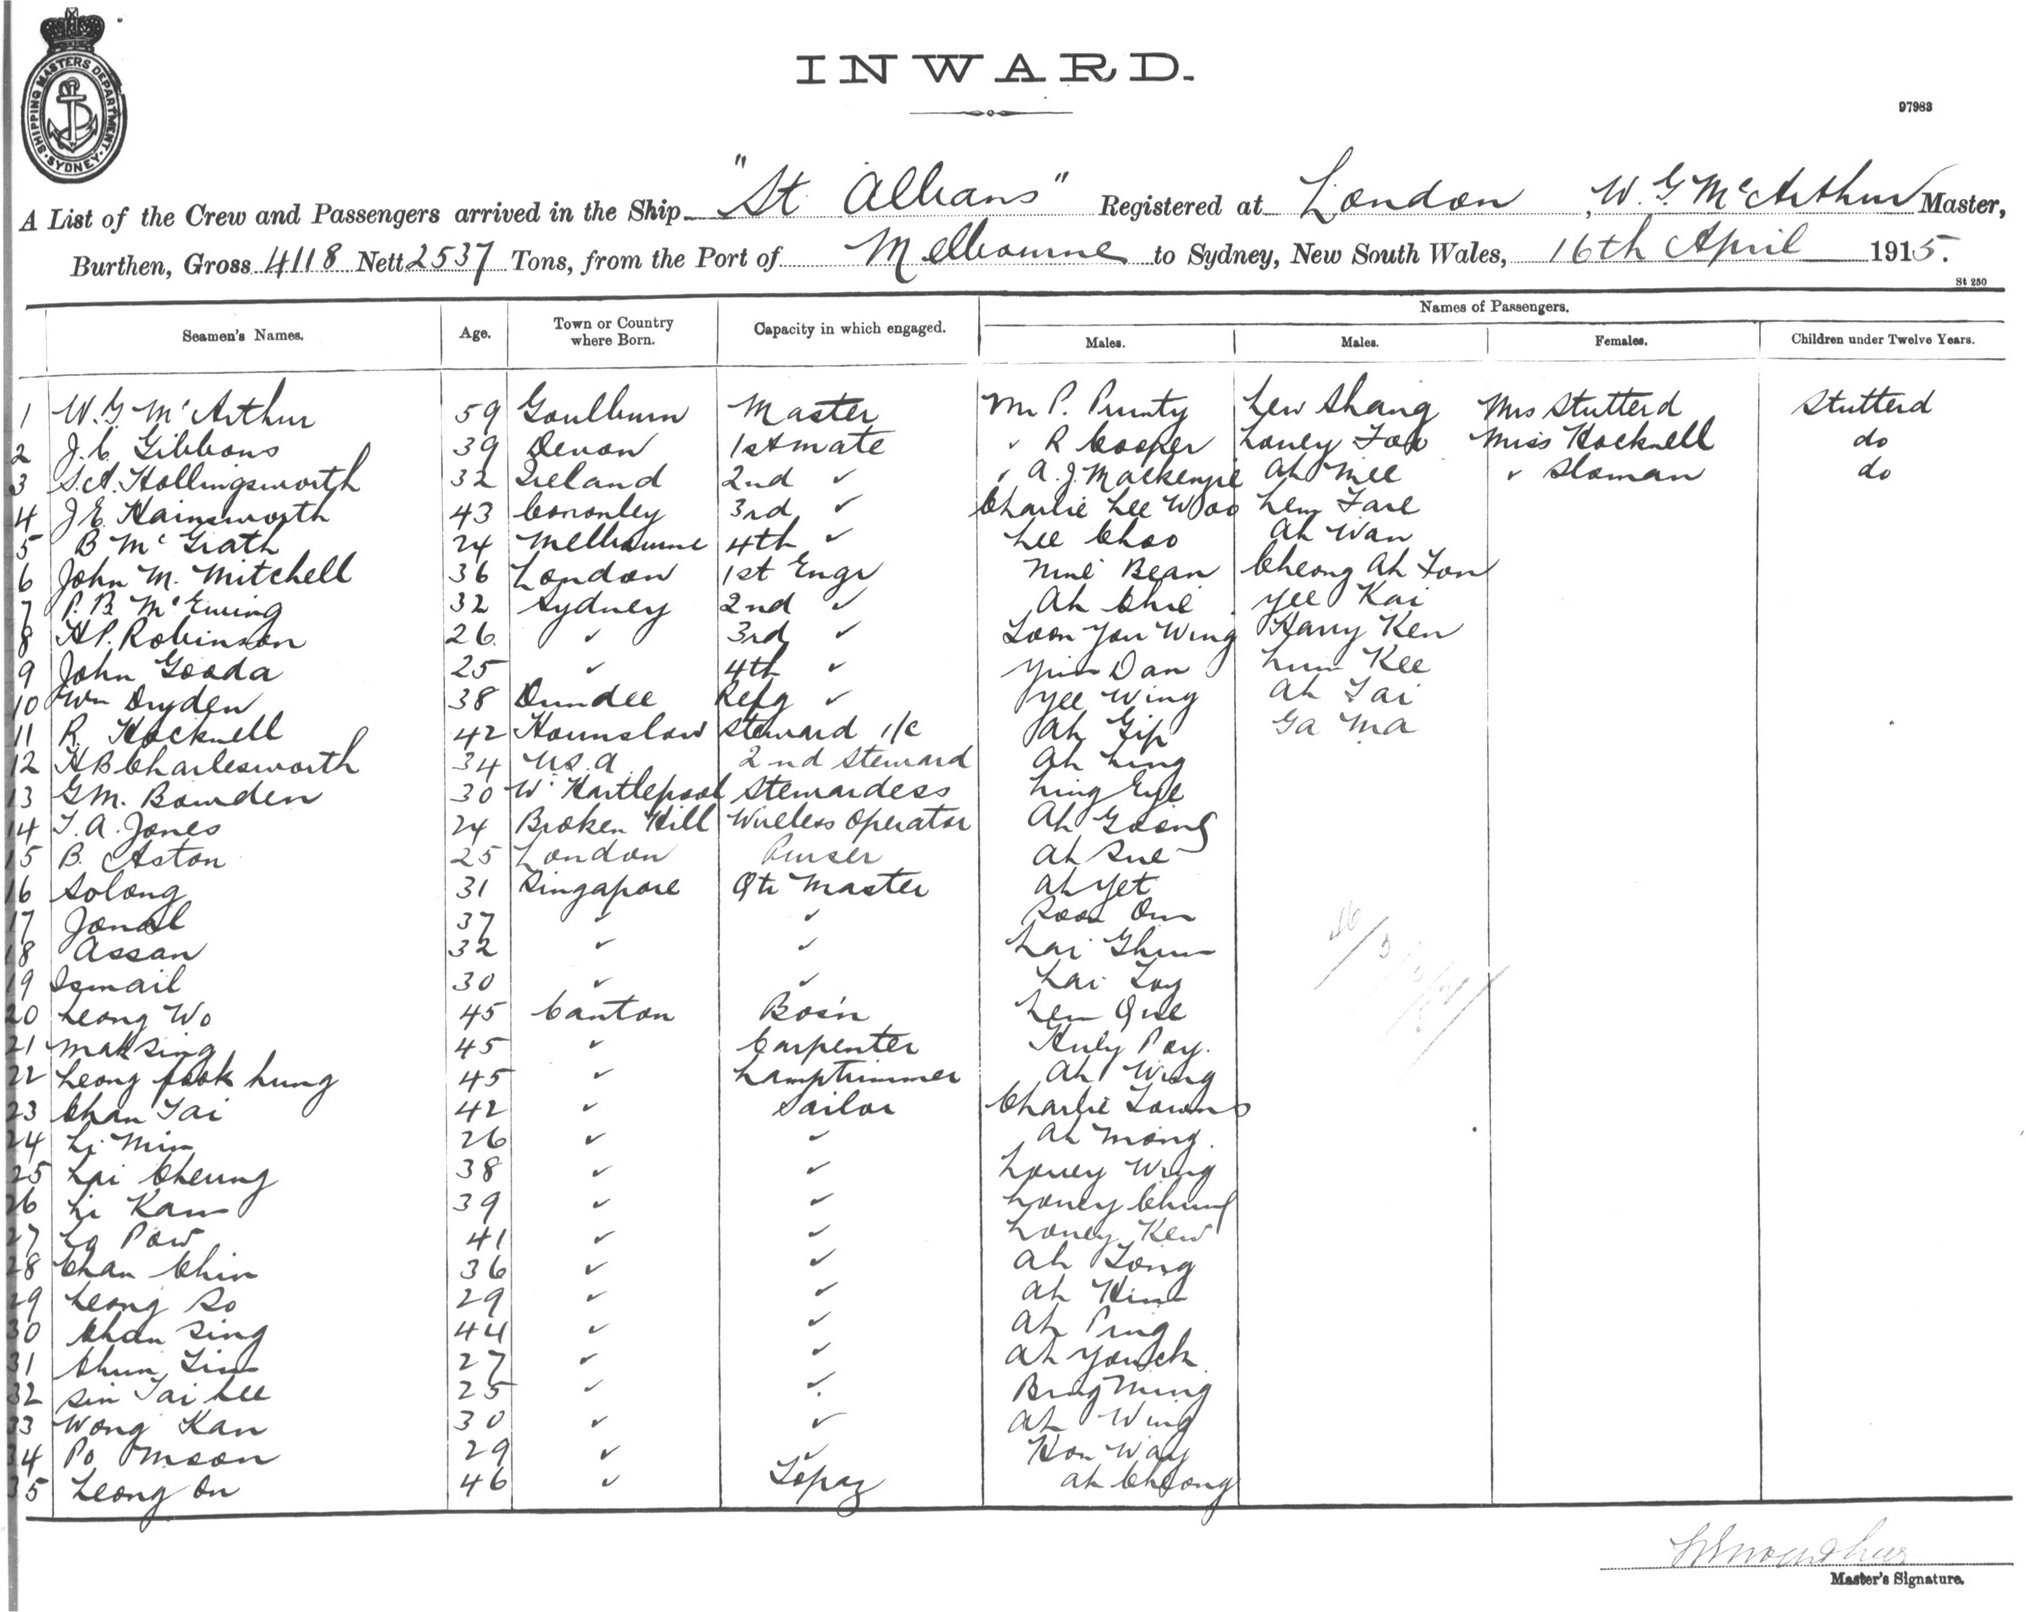 INWARD.
SHIPPING MASTERS DEPARTMENT. SYDNEY
97983
A List of the Crew and Passengers arrived in the Ship "St Albans" Registered at London, W. G. McArthur Master,
Burthen, Gross 4118 Nett 2537 Tons, from the Port of Melbourne to Sydney, New South Wales, 16th April 1915.
St 250
Names of Passengers.
Seamen's Names. Age. Town or Country where Born. Capacity in which engaged. Males. Males. Females. Children under Twelve Years.
1 W. G. McArthur 59 Goulburn Master Mr P. Prunty Lew Shang Mrs Stutterd Stutterd
2 J. C. Gibbons 39 Devon 1st mate " R Cooper Louey Fon Miss Hocknell do
3 S. A. Hollingsworth 32 Ireland 2nd " " A. J. Mackenzie Ah Mee " Sloman do
4 J E. Hainsworth 43 Cononley 3rd " Charlie Lee Woo Lem Fare
5 B McGrath 24 Melbourne 4th " Lee Choo Ah Wan
6 John M. Mitchell 36 London 1st Engr Bean Cheong Ah Fon
7 P. B. McEwing 32 Sydney 2nd " Ah Chie Yee Kai
8 H P. Robinson 26 " 3rd " Loon You Wing Harry Ken
9 John Gooda 25 " 4th " Dan Lum Kee
10 Wm Dryden 38 Dundee Refg " Yee Wing Ah Tai
11 R. Hocknell 42 Hounslow Steward 1/c Ah Gip Ga Ma
12 H B Charlesworth 34 U.S.A. 2nd Steward Ah Ling
13 G M. Bowden 30 W. Hartlepool Stewardess Ling
14 T. A. Jones 24 Broken Hill Wireless Operator Ah Goong
15 B. Aston 25 London Purser Ah Sue
16 Solong 31 Singapore Qtr Master Ah Yet
17 Jonal 37 " " Soon
18 Assan 32 " " Lai
19 Ismail 30 " " Lai Loy
20 Leong Wo 45 Canton Bos'n Lem Que
21 Mak Sing 45 " Carpenter Poy.
22 Leong fook hung 45 " Lamptrimmer Ah Wing
23 Chan Tai 42 " Sailor Charlie
24 Li Min 26 " " Ah Mong.
25 Lai Cheung 38 " " Louey Wing
26 Li Kam 39 " " Louey
27 Lo Pow 41 " " Louey Kew
28 Chan Chin 36 " " Ah Long
29 Leong So 29 " " Ah Him
30 Chan Sing 44 " " Ah Ping
31 Chun Tim 27 " " Ah Youck
32 Sin Tai Lee 25 " " Ming
33 Wong Kan 30 " " Ah Wing
34 Po Moon 29 " " Hon Way
35 Leong On 46 " Topaz Ah Cheong
Master's Signature.